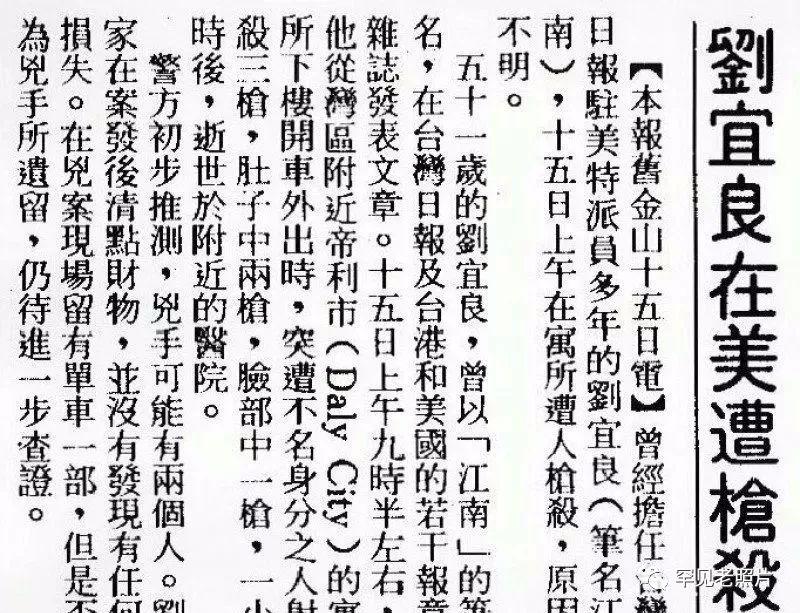 劉宜良在美遭槍殺
【本報舊金山十五日電】曾經擔任台灣
日報駐美特派員多年的劉宜良(筆名江
南),十五日上午在寓所遭人槍殺,原因
不明。
五十一歲的劉宜良,曾以「江南」的筆
名,在台灣日報及台港和美國的若干報章
雜誌發表文章。十五日上午九時半左右,
他從灣區附近帝利市(Daly City)的寓
所下樓開車外出時,突遭不名身分之人射
殺三槍,肚子中兩槍,臉部中一槍,一小
時後,逝世於附近的醫院。
警方初步推測,兇手可能有兩個人。劉
家在案發後清點財物,並沒有發現有任何
損失。在兇案現場留有單車一部,但是否
為兇手所遺留,仍待進一步查證。
罕见老照片